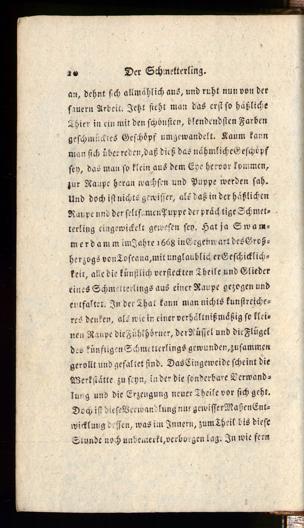 10 Der Schmetterling.
an, dehnt sich allmählich aus, und ruht nun von der
sauern Arbeit. Jetzt sieht man das erst so häßliche
Thier in ein mit den schönsten, blendendsten Farben
geschmücktes Geschöpf umgewandelt. Kaum kann
man sich überreden, daß dieß das nähmliche Geschöpf
sey, das man so klein aus dem Eye hervor kommen,
zur Raupe heran wachsen und Puppe werden sah.
Und doch ist nichts gewisser, als daß in der häßlichen
Raupe und der seltsamen Puppe der prächtige Schmet-
terling eingewickelt gewesen sey. Hat ja Swam-
merdamm im Jahre 1668 in Gegenwart des Groß-
herzogs von Toscana, mit unglaublicher Geschicklich-
keit, alle die künstlich versteckten Theile und Glieder
eines Schmetterlings aus einer Raupe gezogen und
entfaltet. In der That kann man nichts kunstreiche-
res denken, als wie in einer verhältnißmäßig so klei-
nen Raupe die Fühlhörner, der Rüssel und die Flügel
des künftigen Schmetterlings gewunden, zusammen
gerollt und gefaltet sind. Das Eingeweide scheint die
Werkstätte zu seyn, in der die sonderbare Verwand-
lung und die Erzeugung neuer Theile vor sich geht.
Doch ist diese Verwandlung nur gewisser Maßen Ent-
wicklung dessen, was im Innern, zum Theil bis diese
Stunde noch unbemerkt, verborgen lag. In wie fern